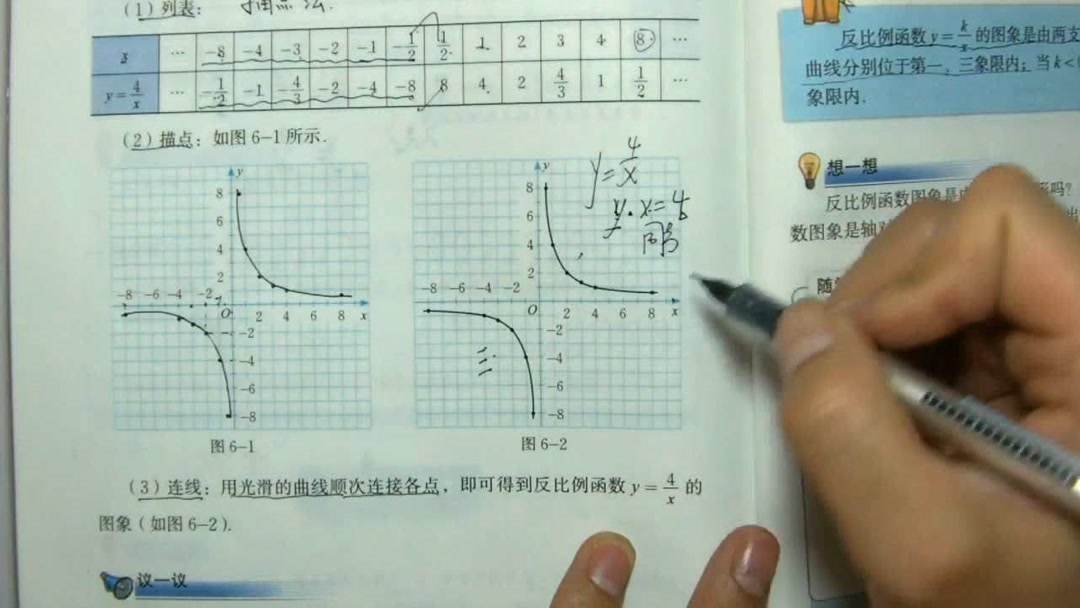 (1)列表: 描点法.
x … -8 -4 -3 -2 -1 -1/2 1/2 1 2 3 4 8 …
y=4/x … -1/2 -1 -4/3 -2 -4 -8 8 4 2 4/3 1 1/2 …
(2)描点: 如图 6-1 所示.
y
8
6
4
2
-8 -6 -4 -2 O 2 4 6 8 x
-2
-4
-6
-8
图 6-1
y
8
6
4
2
-8 -6 -4 -2 O 2 4 6 8 x
-2
-4
-6
-8
图 6-2
y=4/x
y·x=4
同号
一
三
(3)连线: 用光滑的曲线顺次连接各点, 即可得到反比例函数 y=4/x 的
图象(如图 6-2).
议一议
反比例函数 y=k/x 的图象是由两支
曲线分别位于第一、三象限内; 当 k<
象限内.
想一想
反比例函数图象是
形吗?
数图象是轴对
随